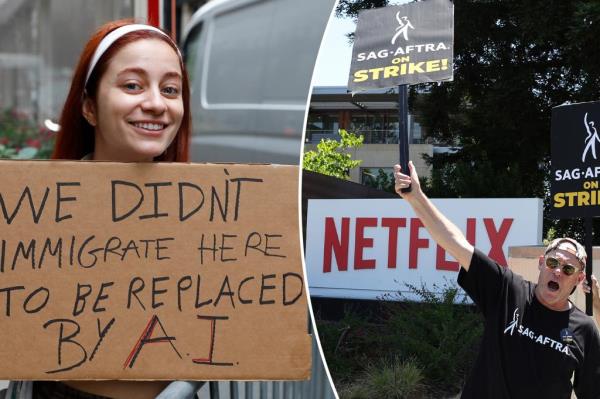 WE DIDN'T
IMMIGRATE HERE
TO BE REPLACED
BY A.I.
SAG·AFTRA
ON
STRIKE!
NETFLIX
SAG·AF
ON
STRI
SAG·AFTRA